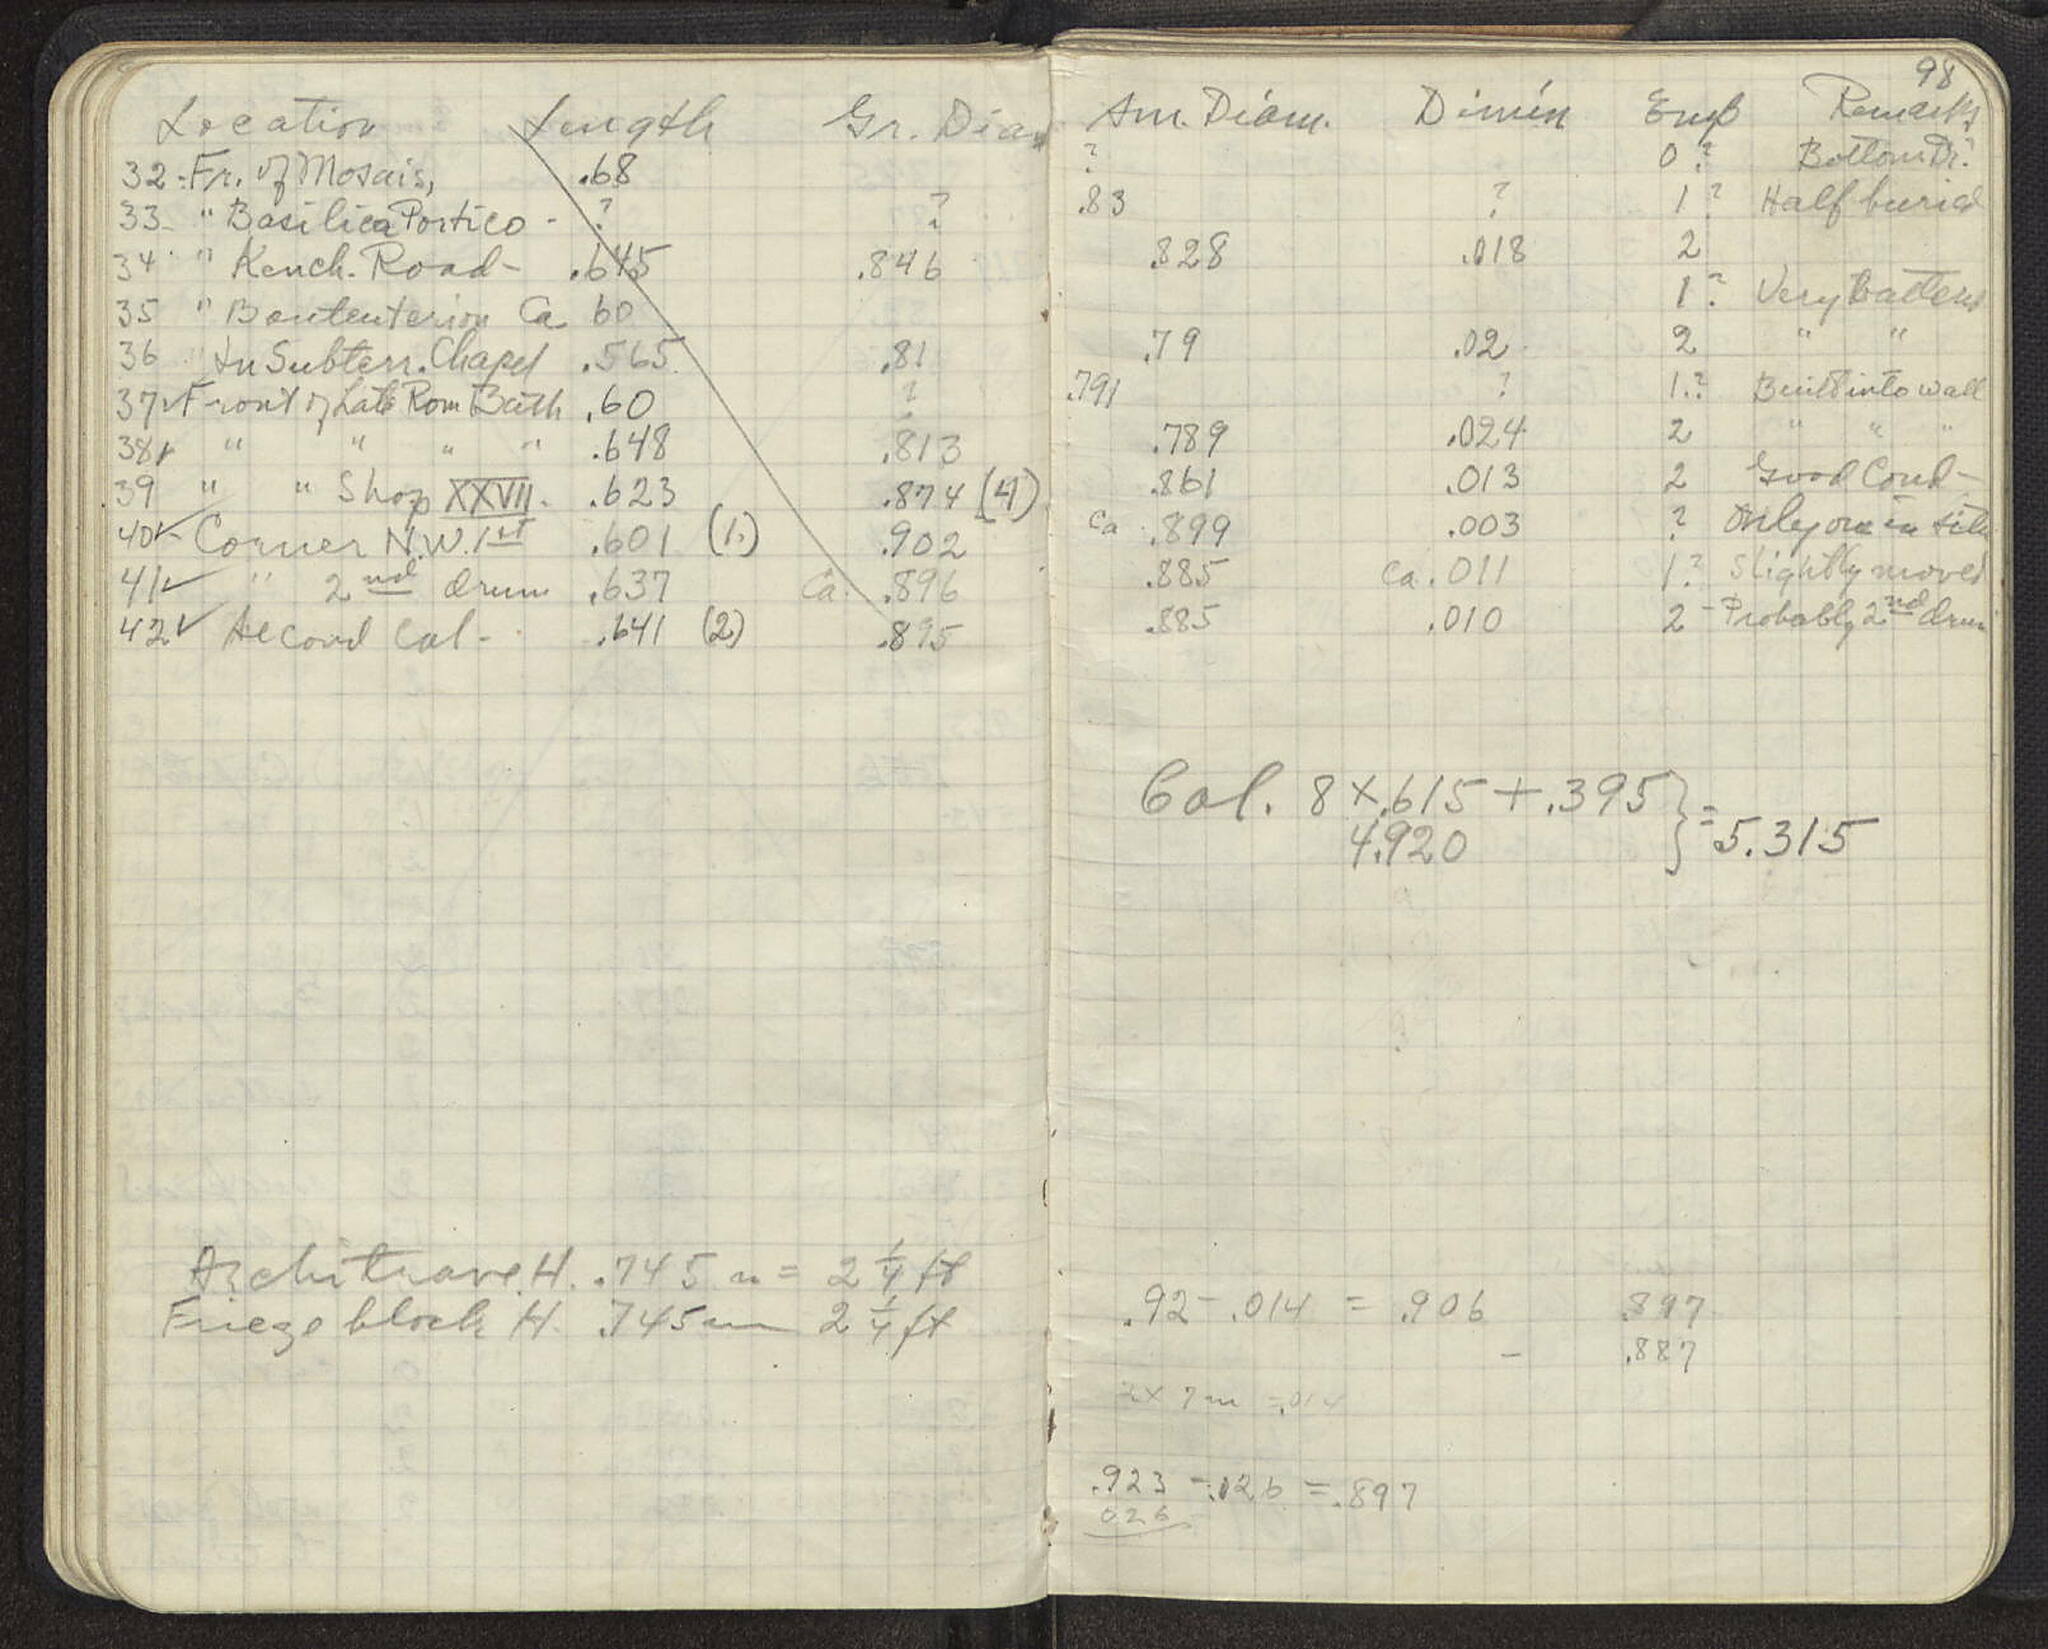 Location Length Gr. Diam
32 - Fr. of Mosaic, .68
33 - " Basilica Portico - ? ?
34 " Kench. Road - .645 .846
35 " Bouleuterion Ca 60
36 " In Subterr. Chapel .565 .81
37 ✓ Front of Late Rom Bath .60 ?
38 ✓ " " " " .648 .813
39 " " Shop XXVII. .623 .874 (4)
40 ✓ Corner N.W. 1st .601 (1.) .902
41 ✓ " 2nd drum .637 Ca. .896
42 ✓ Second Col - .641 (2) .895
Architrave H. .745 m = 2 1/4 ft
Frieze block H. .745 m 2 1/4 ft
98
Sm. Diam. Dimin Emp Remarks
? 0 ? Bottom Dr.
.83 ? 1 ? Half buried
.828 .018 2
1 ? Very battered
.79 .02 2 " "
.791 ? 1.? Built into wall
.789 .024 2 " " "
.861 .013 2 Good Cond -
Ca .899 .003 ? Only one in situ
.885 Ca. .011 1? Slightly moved
.885 .010 2 - Probably 2nd drum
Col. 8 × .615 + .395 } = 5.315
4.920
.92 - .014 = .906 .897
- .887
2 × 7 m = .014
.923 - .026 = .897
026